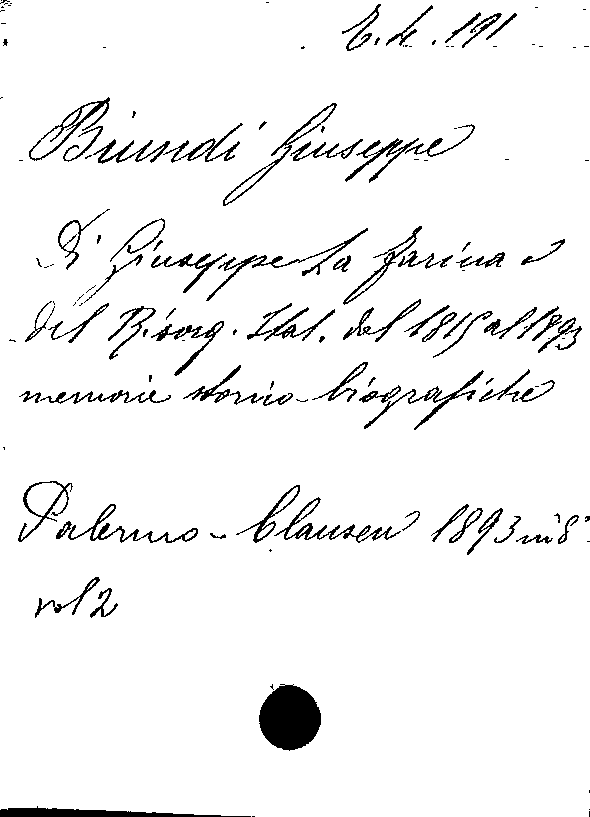 E. h. 191
Biundi Giuseppe
Di Giuseppe La Farina e
del Risorg. Ital. dal 1815 al 1893
memorie storico-biografiche
Palermo - Clausen 1893 in 8°
vol 2